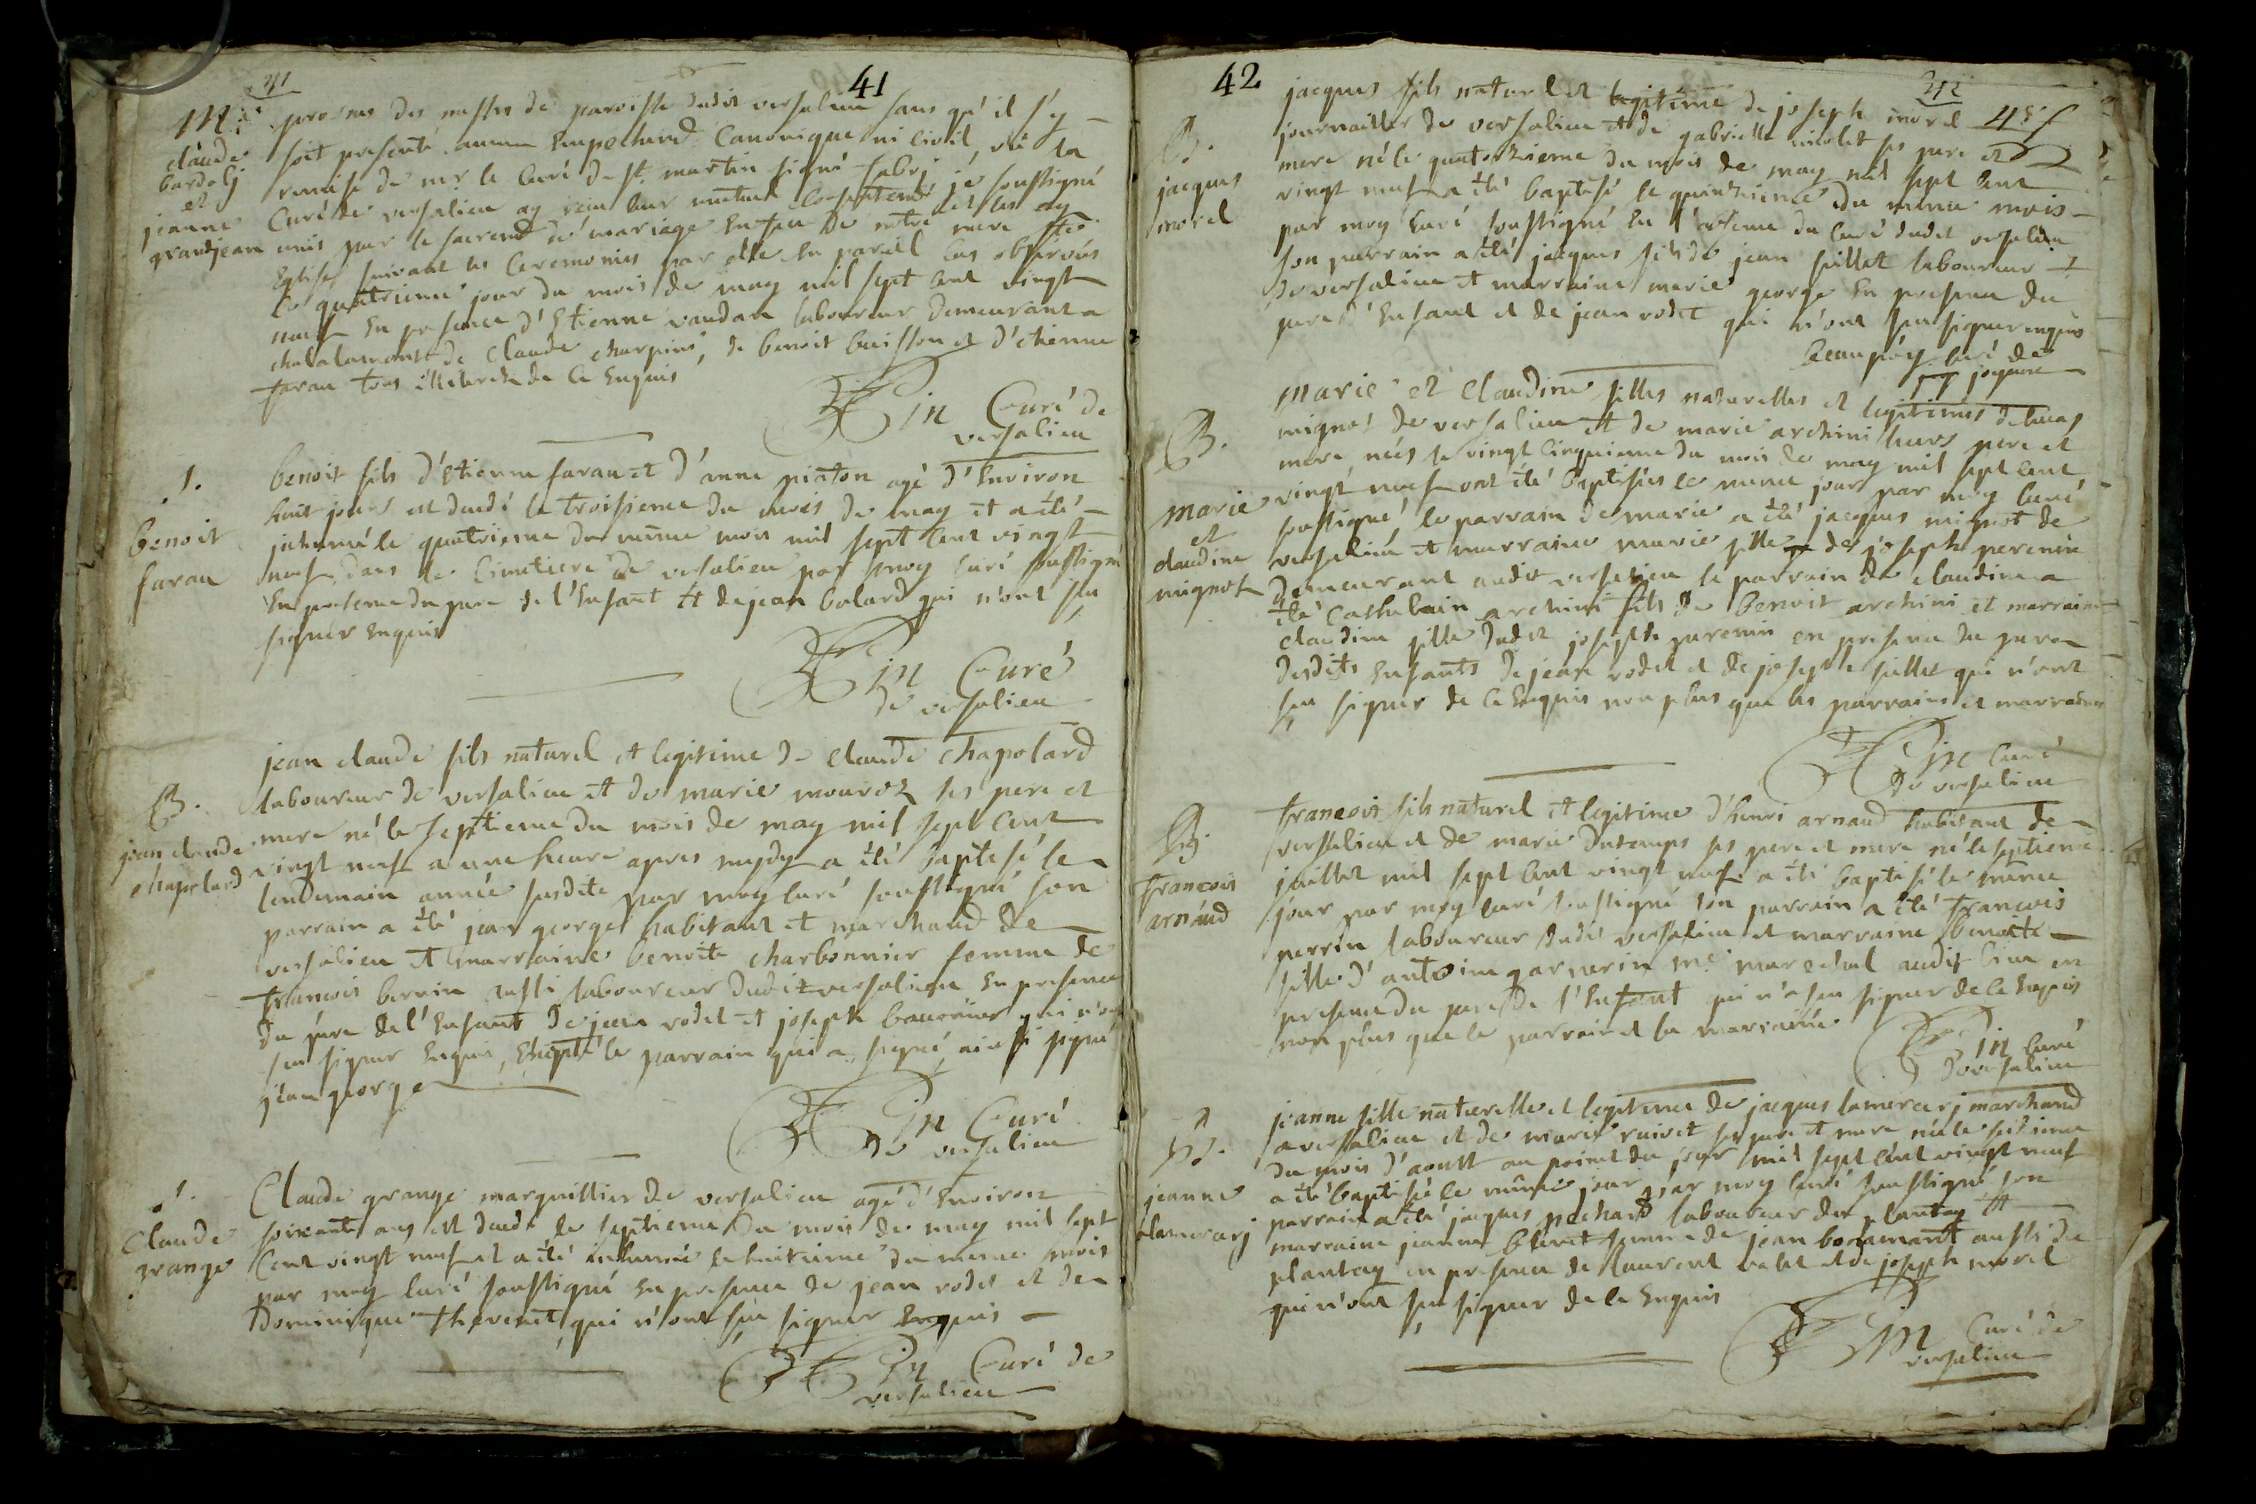 41
41
M
claude
bardoly
et
jeanne
grandjean
prosnes des messes de paroisse dudit versalieu sans qu'il s'y
soit presenté aucun Empechemt Canonique ni civil, vû la
remise de mr. le Curé de st. martin signé fabry je soussigné
Curé de versalieu ay receu leur mutuel Consentemt et les ay
unis par le sacremt de mariage En face De notre mere ste
Eglise suivant les Ceremonies par elle En pareil Cas observées
le quatrieme jour du mois de may mil sept Cent vingt
neuf En presence d'Etienne vaudan laboureur Demeurant a
chalalamont de Claude charpine, de benoit buisson et d'etienne
farau tous illeterés de Ce Enquis
Curé de
versalieu
.1.
benoit
farau
benoit fils d'Etienne farau et d'anne piaton agé d'Environ
huit jours est decedé le troisieme du mois de may et a été
inhumé le quatrieme du même mois mil sept Cent vingt
neuf dans le Cimetiere de versalieu par moy Curé soussigné
En presence du pere de l'Enfant et de jean balard qui n'ont sçu
signer Enquis
Curé
de versalieu
B.
jean claude
chapolard
jean claude fils naturel et legitime de claude chapolard
laboureur de versalieu et de marie mourez ses pere et
mere né le septieme du mois de may mil sept Cent
vingt neuf a une heure apres mydy a été baptisé le
lendemain année susdite par moy Curé soussigné son
parrain a été jean george habitant et marchand de
versalieu et marraine benoite charbonnier femme de
francois berrin aussi laboureur dudit versalieu En presence
du pere de l'Enfant de jean rodet et joseph qui n'ont
sçu signer Enquis, Excepté le parrain qui a signé, ainsi signé
jean george
Curé
De versalieu
.1.
Claude
grange
Claude grange marguillier de versalieu agé d'Environ
soixante ans est decedé le septieme Du mois de may mil sept
Cent vingt neuf et a été inhumé le huitieme du meme mois
par moy Curé soussigné En presence de jean rodet et de
Dominique thevenet, qui n'ont sçu signer Enquis
Curé de
versalieu
42
42
B.
jacques
morel
jacques fils naturel et legitime de joseph morel
journaillier de versalieu et de gabrielle nicolet ses pere et
mere né le quatorzieme du mois de may mil sept Cent
vingt neuf a été baptisé le quinzieme du meme mois
par moy Curé soussigné En l'absence du Curé dudit versalieu
son parrain a été jacques fils de jean sillet laboureur
De versalieu et marraine marie george En presence du
pere d'Enfant et de jean rodet qui n'ont sçu signer enquis
beaupoy Curé de
joyeux
B.
marie
et
claudine
mignot
marie et Claudine filles naturelles et legitimes de
mignot de versalieu et de marie archini leurs pere et
mere, nées le vingt Cinquieme du mois de may mil sept Cent
vingt neuf ont été baptisées le meme jour par moy Curé
soussigné, le parrain de marie a été jacques mignot de
versalieu et marraine marie fille de joseph perenin
Demeurant audit versalieu le parrain de claudine a
été Cathelain archini fils de benoit archini et marraine
claudine fille dudit joseph perenin en presence du pere
desdits Enfants de jean rodet et de joseph sillet qui n'ont
sçu signer de Ce Enquis non plus que les parrains et marraines
Curé
De versalieu
B.
francois
arnaud
francois fils naturel et legitime d'henri arnaud habitant de
versalieu et de marie Dutemps ses pere et mere né le septieme
juillet mil sept Cent vingt neuf a été baptisé le même
jour par moy Curé soussigné son parrain a été francois
perrin laboureur dudit versalieu et marraine benoite
fille d'antoine garnerin me marechal audit lieu en
presence du pere de l'Enfant qui n'a sçu signer de Ce Enquis
non plus que le parrain et la marraine
Curé
De versalieu
B.
jeanne
lamercerj
jeanne fille naturelle et legitime de jacques lamercerj marchand
a versalieu et de marie ruivet ses pere et mere née le seizieme
du mois d'aoust au point du jour mil sept Cent vingt neuf
a été baptisée le même jour par moy Curé soussigné son
parrain a été jacques pochard laboureur du plantay et
marraine jeanne blenet femme de jean bonamant aussi du
plantay en presence de laurent balet et de joseph morel
qui n'ont sçu signer de Ce Enquis
Curé de
versalieu